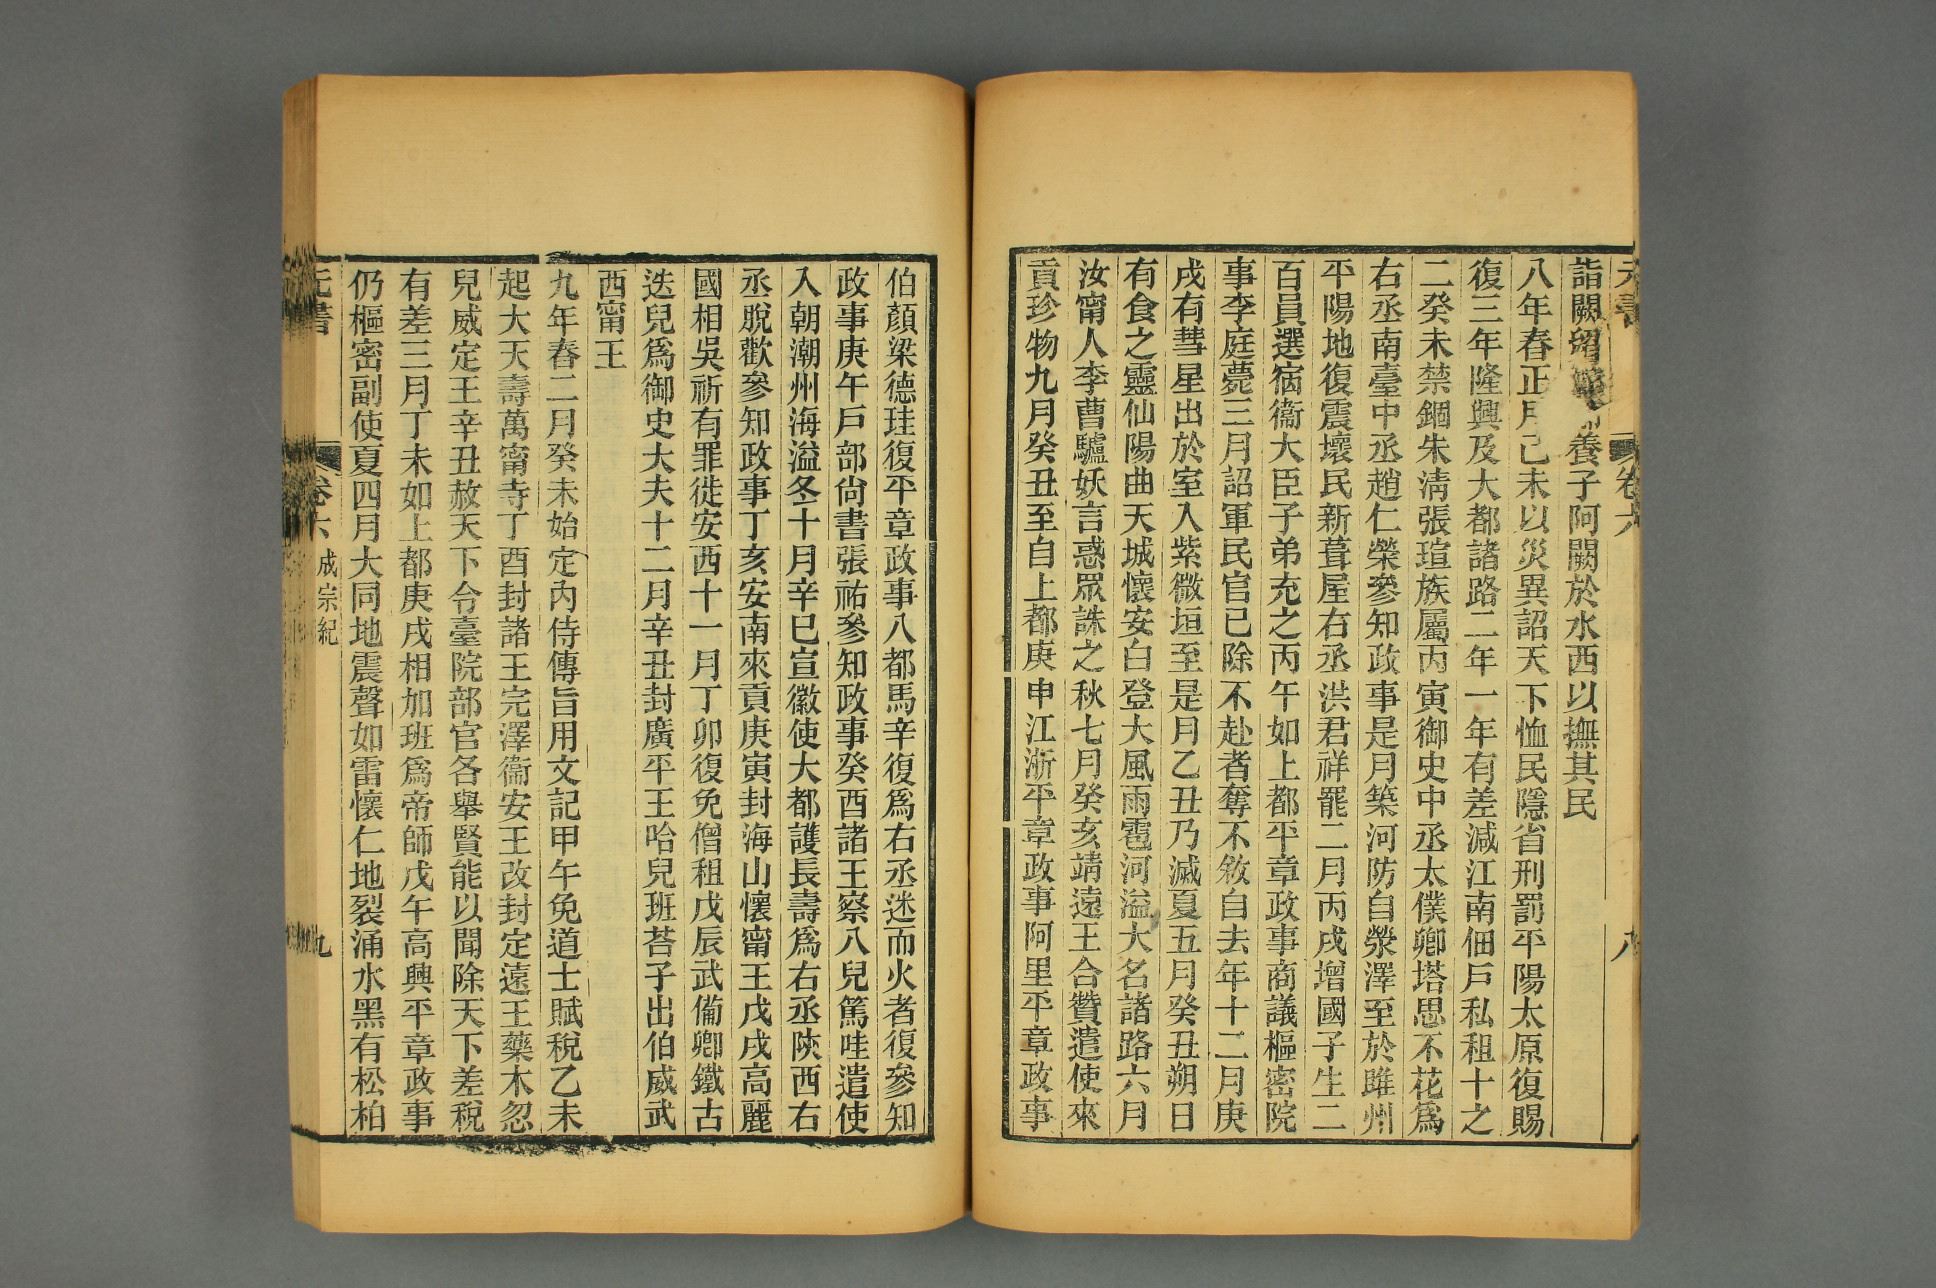 元書
卷六
八
詣闕留 養子阿闕於水西以撫其民
八年春正月己未以災異詔天下恤民隱省刑罰平陽太原復賜
復三年隆興及大都諸路二年一年有差減江南佃戶私租十之
二癸未禁錮朱清張瑄族屬丙寅御史中丞太僕卿塔思不花爲
右丞南臺中丞趙仁榮參知政事是月築河防自滎澤至於睢州
平陽地復震壞民新葺屋右丞洪君祥罷二月丙戌增國子生二
百員選宿衞大臣子弟充之丙午如上都平章政事商議樞密院
事李庭薨三月詔軍民官已除不赴者奪不敘自去年十二月庚
戌有彗星出於室入紫微垣至是月乙丑乃滅夏五月癸丑朔日
有食之靈仙陽曲天城懷安白登大風雨雹河溢大名諸路六月
汝甯人李曹驢妖言惑眾誅之秋七月癸亥靖遠王合贊遣使來
貢珍物九月癸丑至自上都庚申江浙平章政事阿里平章政事
伯顏梁德珪復平章政事八都馬辛復爲右丞迷而火者復參知
政事庚午戶部尙書張祐參知政事癸酉諸王察八兒篤哇遣使
入朝潮州海溢冬十月辛巳宣徽使大都護長壽爲右丞陝西右
丞脫歡參知政事丁亥安南來貢庚寅封海山懷甯王戊戌高麗
國相吳祈有罪徙安西十一月丁卯復免僧租戊辰武備卿鐵古
迭兒爲御史大夫十二月辛丑封廣平王哈兒班荅子出伯威武
西甯王
九年春二月癸未始定內侍傳旨用文記甲午免道士賦稅乙未
起大天壽萬甯寺丁酉封諸王完澤衞安王改封定遠王藥木忽
兒威定王辛丑赦天下令臺院部官各舉賢能以聞除天下差稅
有差三月丁未如上都庚戌相加班爲帝師戊午高興平章政事
仍樞密副使夏四月大同地震聲如雷懷仁地裂涌水黑有松柏
元書
卷六 成宗紀
九